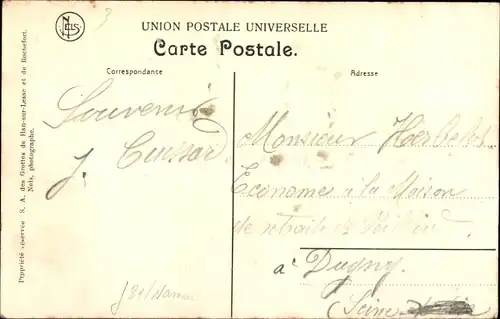 NELS
3
UNION POSTALE UNIVERSELLE
Carte Postale.
Correspondance
Adresse
Souvenir
J.
Monsieur
Econome à la Maison
de retraite
à Dugny.
(Seine
Propriété réservée S. A. des Grottes de Han-sur-Lesse et de Rochefort.
Nels, photographe.